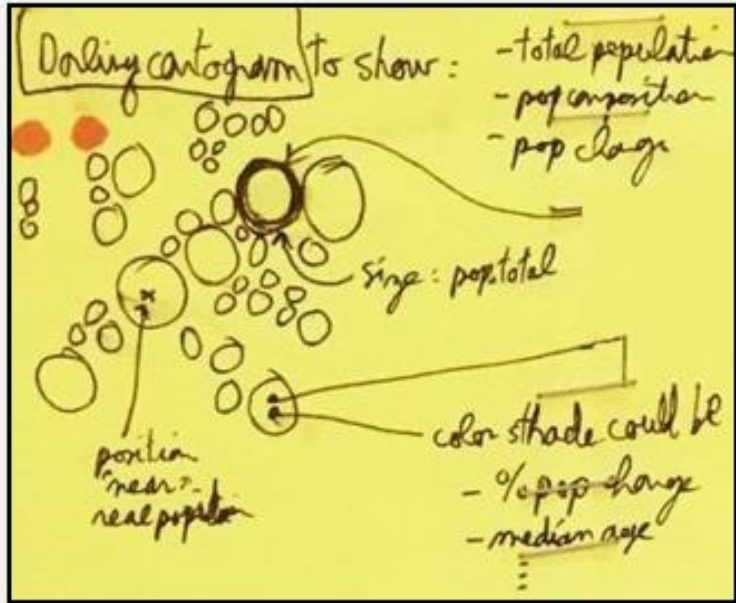 Dorling cartogram to show:
- total population
- pop composition
- pop change
size: pop.total
position
"near"
real
color sthade could be
- % pop change
- median age